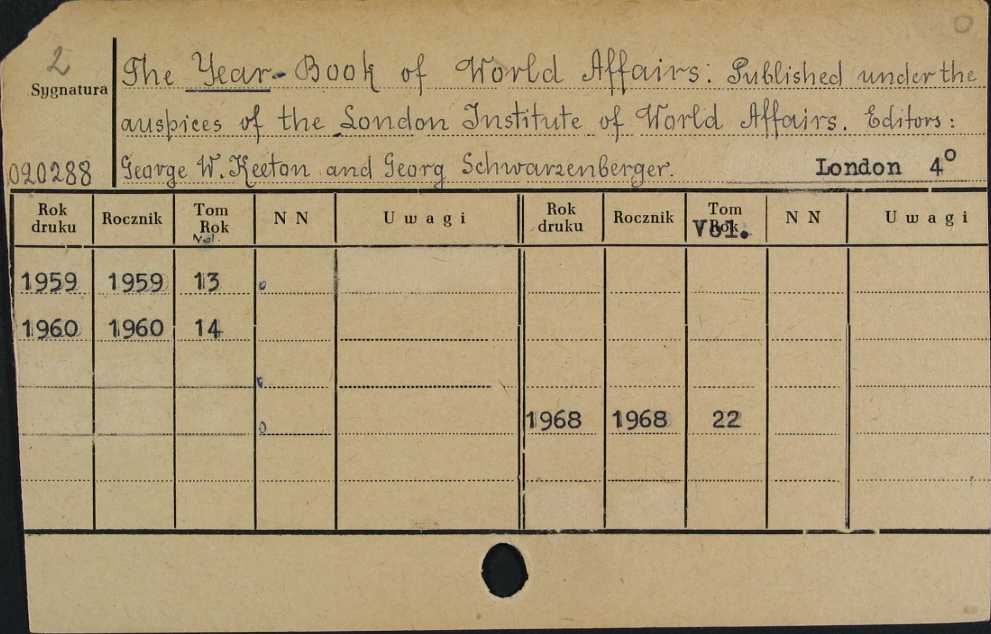 2
Sygnatura
020288
The Year-Book of World Affairs: Published under the
auspices of the London Institute of World Affairs. Editors:
George W. Keeton and Georg Schwarzenberger. London 4°
Rok druku Rocznik Tom Rok Vol. N N Uwagi Rok druku Rocznik Tom Rok Vol. N N Uwagi
1959 1959 13
1960 1960 14
1968 1968 22